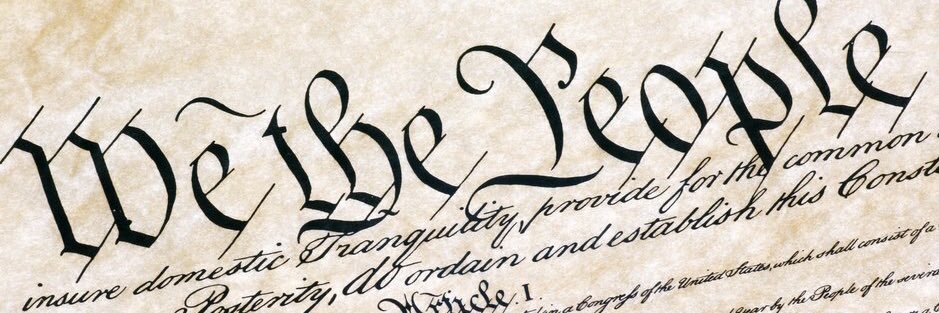 We the People
insure domestic Tranquility, provide for the common
Posterity, do ordain and establish this Const
Article. I.
in a Congress of the United States, which shall consist of a
by the People of the several